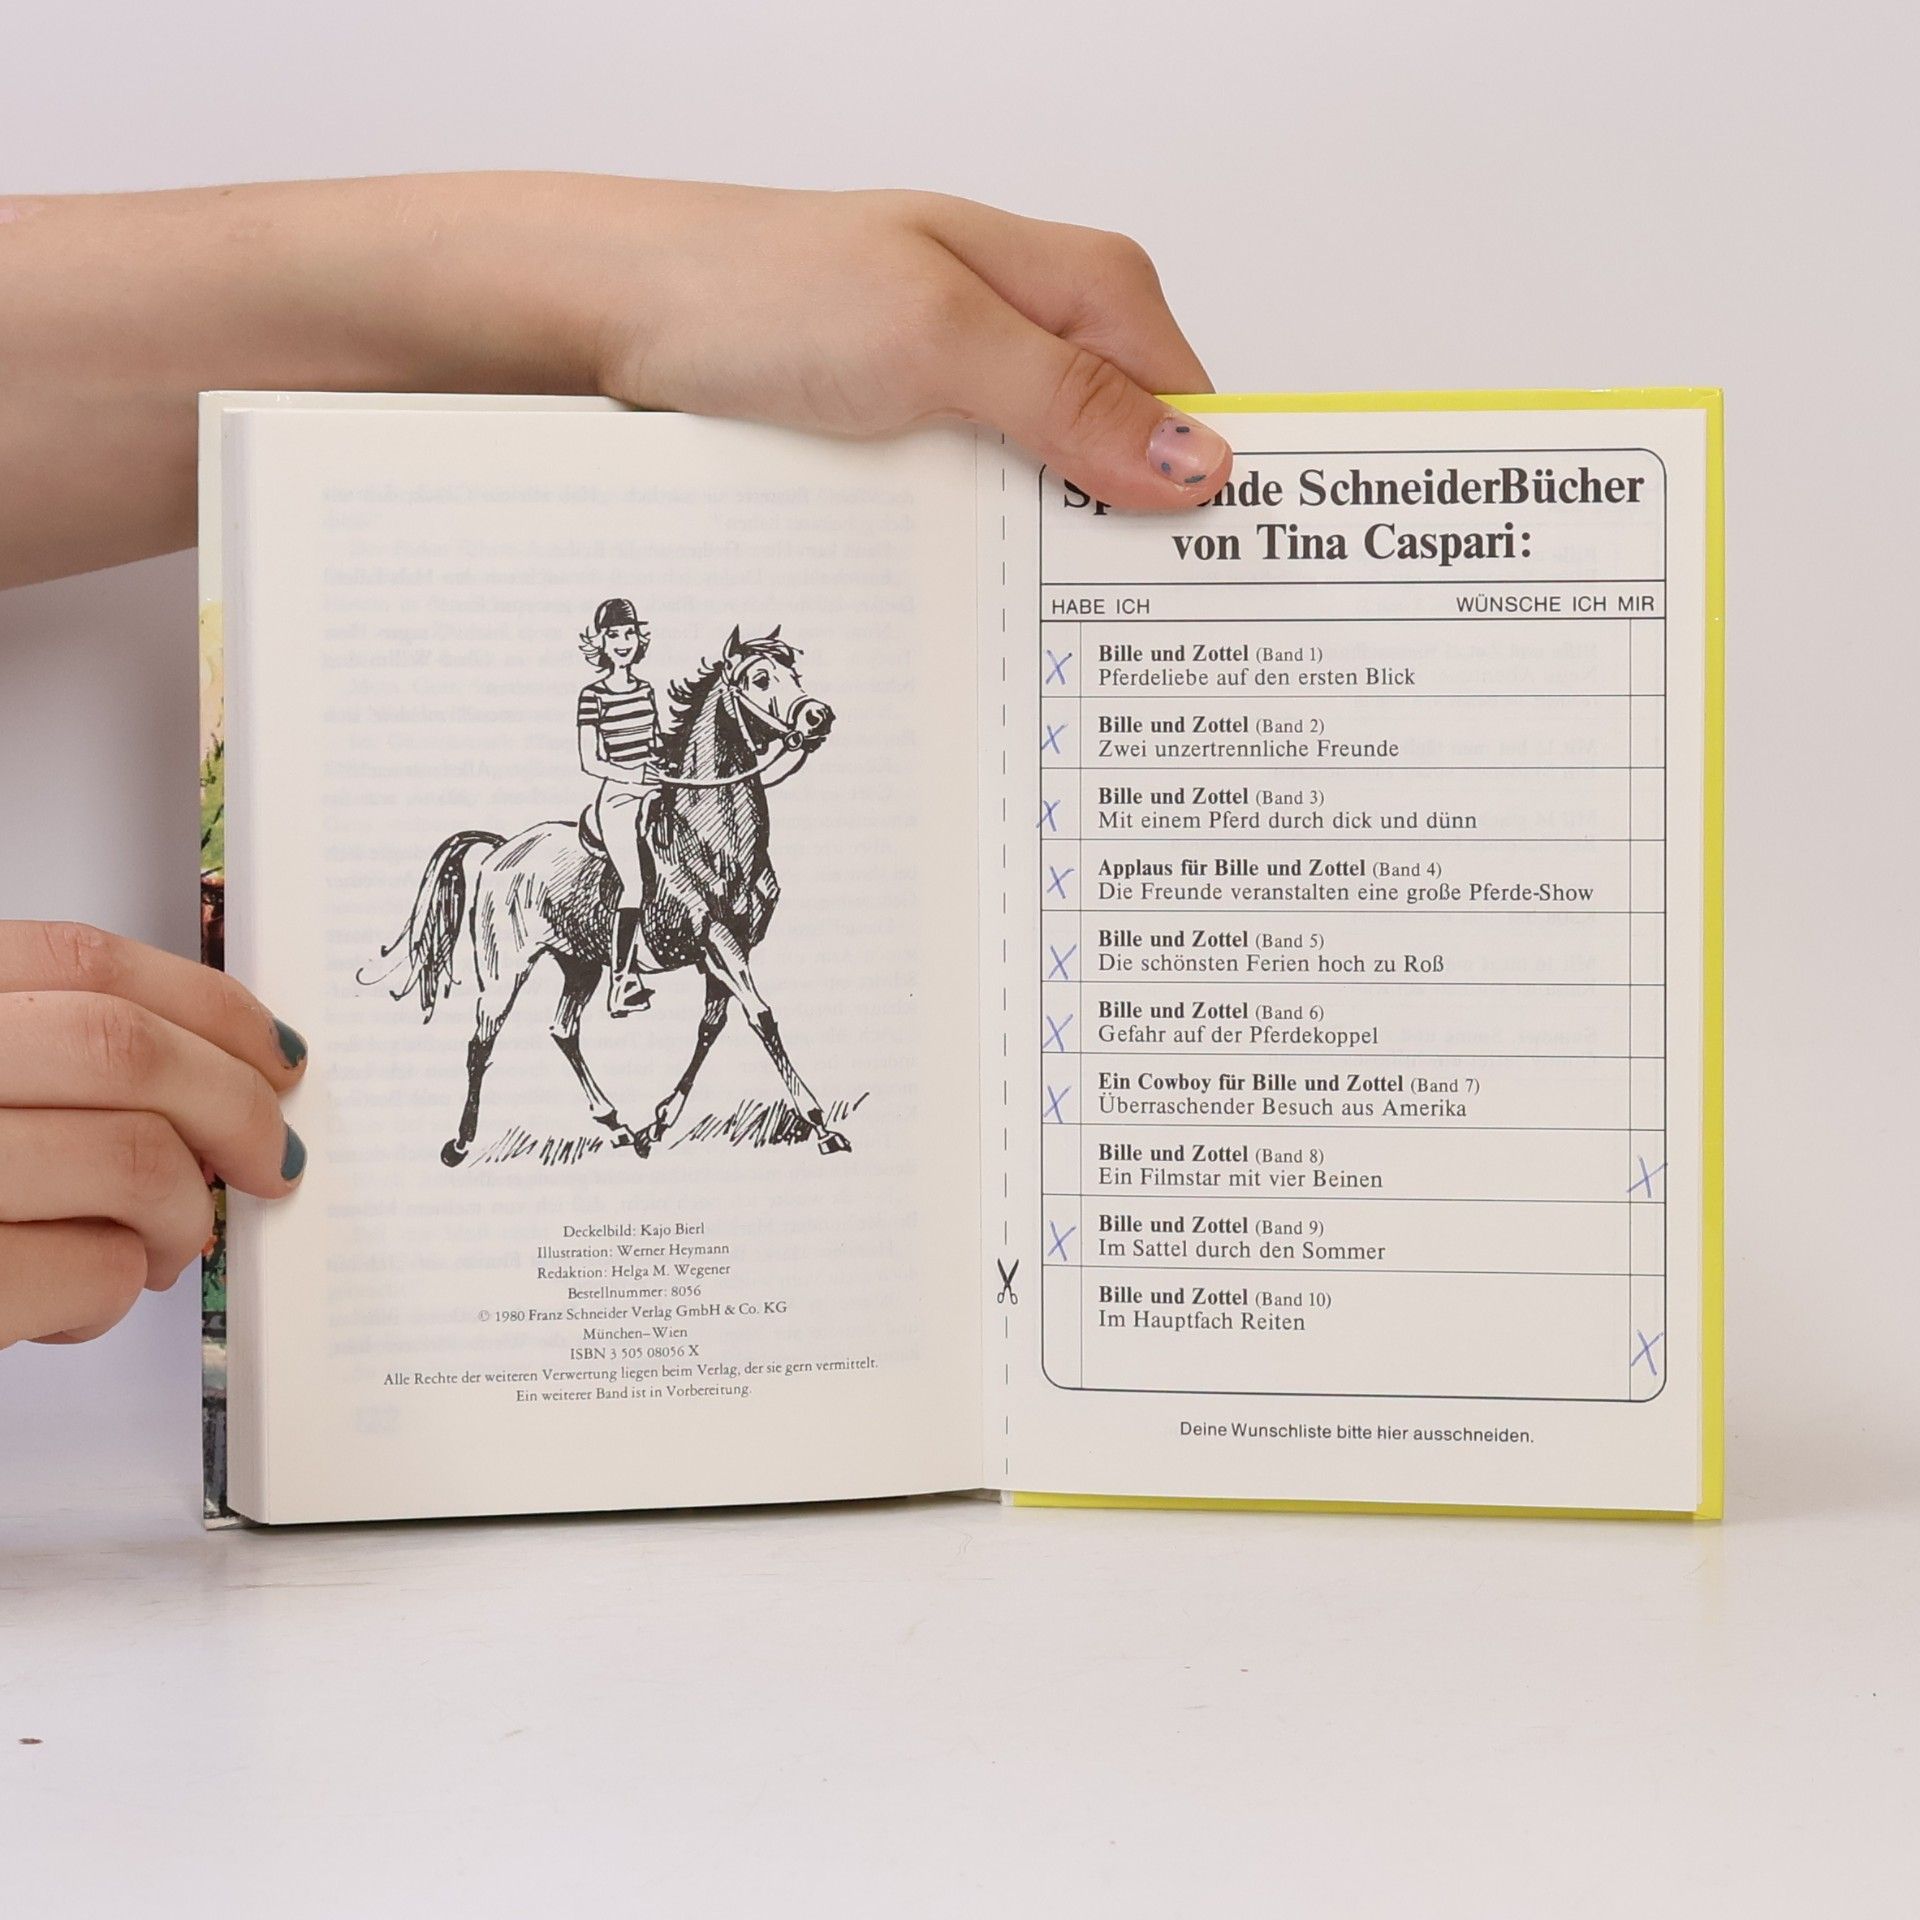 Deckelbild: Kajo Bierl
Illustration: Werner Heymann
Redaktion: Helga M. Wegener
Bestellnummer: 8056
© 1980 Franz Schneider Verlag GmbH & Co. KG
München–Wien
ISBN 3 505 08056 X
Alle Rechte der weiteren Verwertung liegen beim Verlag, der sie gern vermittelt.
Ein weiterer Band ist in Vorbereitung.
SchneiderBücher
von Tina Caspari:
HABE ICH WÜNSCHE ICH MIR
X Bille und Zottel (Band 1)
Pferdeliebe auf den ersten Blick
X Bille und Zottel (Band 2)
Zwei unzertrennliche Freunde
X Bille und Zottel (Band 3)
Mit einem Pferd durch dick und dünn
X Applaus für Bille und Zottel (Band 4)
Die Freunde veranstalten eine große Pferde-Show
X Bille und Zottel (Band 5)
Die schönsten Ferien hoch zu Roß
X Bille und Zottel (Band 6)
Gefahr auf der Pferdekoppel
X Ein Cowboy für Bille und Zottel (Band 7)
Überraschender Besuch aus Amerika
Bille und Zottel (Band 8)
Ein Filmstar mit vier Beinen X
X Bille und Zottel (Band 9)
Im Sattel durch den Sommer
Bille und Zottel (Band 10)
Im Hauptfach Reiten
X
Deine Wunschliste bitte hier ausschneiden.